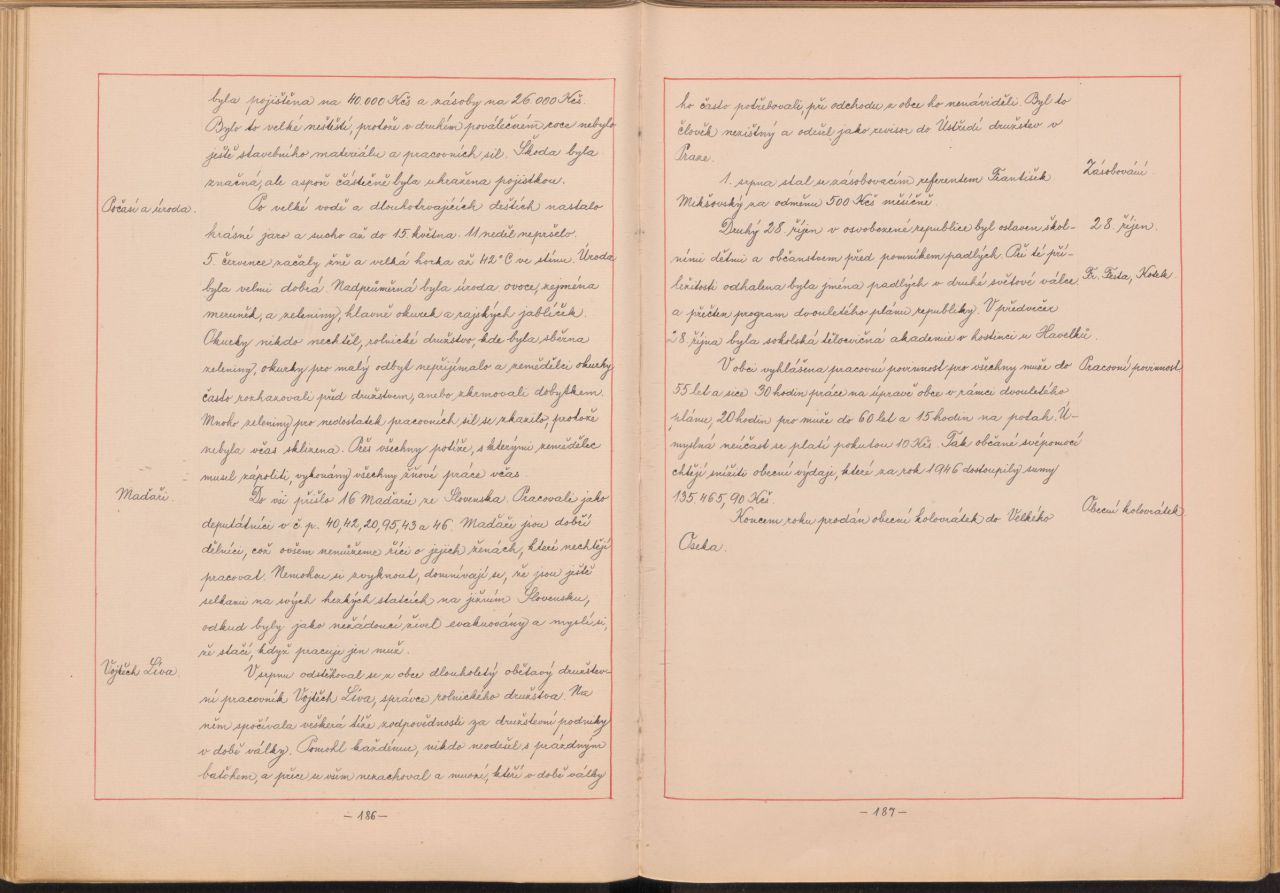 byla pojištěna na 40.000 Kčs a zásoby na 26.000 Kčs.
Bylo to velké neštěstí, protože v druhém poválečném roce nebylo
ještě stavebního materiálu a pracovních sil. Škoda byla
značná, ale aspoň částečně byla uhražena pojistkou.
Počasí a úroda.
Po velké vodě a dlouhotrvajících deštích nastalo
krásné jaro a sucho až do 15. května. 11 neděl nepršelo.
5. července začaly žně a velká horka až 42°C ve stínu. Úroda
byla velmi dobrá. Nadprůměrná byla úroda ovoce, zejména
meruněk, a zeleniny, hlavně okurek a rajských jablíček.
Okurky nikdo nechtěl, rolnické družstvo, kde byla sběrna
zeleniny, okurky pro malý odbyt nepřijímalo a zemědělci okurky
často rozhazovali před družstvem, anebo zkrmovali dobytkem.
Mnoho zeleniny pro nedostatek pracovních sil se zkazilo, protože
nebyla včas sklizena. Přes všechny potíže, s kterými zemědělec
musel zápoliti, vykonány všechny žňové práce včas.
Maďaři.
Do vsi přišlo 16 Maďarů ze Slovenska. Pracovali jako
deputátníci v č.p. 40, 42, 20, 95, 43 a 46. Maďaři jsou dobří
dělníci, což ovšem nemůžeme říci o jejich ženách, které nechtějí
pracovat. Nemohou si zvyknout, domnívají se, že jsou ještě
selkami na svých hezkých statcích na jižním Slovensku,
odkud byly jako nežádoucí živel evakuovány a myslí si,
že stačí, když pracuje jen muž.
Vojtěch Líva
V srpnu odstěhoval se z obce dlouholetý obětavý družstev-
ní pracovník Vojtěch Líva, správce rolnického družstva. Na
něm spočívala veškerá tíže zodpovědnosti za družstevní podniky
v době války. Pomohl každému, nikdo neodešel s prázdným
batohem, a přece se všem nezachoval a mnozí, kteří v době války
– 186 –
ho často potřebovali, při odchodu z obce ho nenáviděli. Byl to
člověk nezištný a odešel jako revisor do Ústředí družstev v
Praze.
Zásobování.
1. srpna stal se zásobovacím referentem František
Mikšovský za odměnu 500 Kčs měsíčně.
28. říjen.
Druhý 28. říjen v osvobozené republice byl oslaven škol-
ními dětmi a občanstvem před pomníkem padlých. Při té pří-
ležitosti odhalena byla jména padlých v druhé světové válce.
Fr. Festa, Kotek
a přečten program dvouletého plánu republiky. V předvečer
28. října byla sokolská tělocvičná akademie v hostinci u Havelků.
Pracovní povinnost
V obci vyhlášena pracovní povinnost pro všechny muže do
55 let a sice 30 hodin práce na úpravě obce v rámci dvouletého
plánu, 20 hodin pro muže do 60 let a 15 hodin na potah. Ú-
myslná neúčast se platí pokutou 10 Kčs. Tak občané svépomocí
chtějí snížiti obecní výdaje, které za rok 1946 dostoupily sumy
135.465,90 Kčs.
Obecní kolovrátek
Koncem roku prodán obecní kolovrátek do Velkého
Oseka.
– 187 –